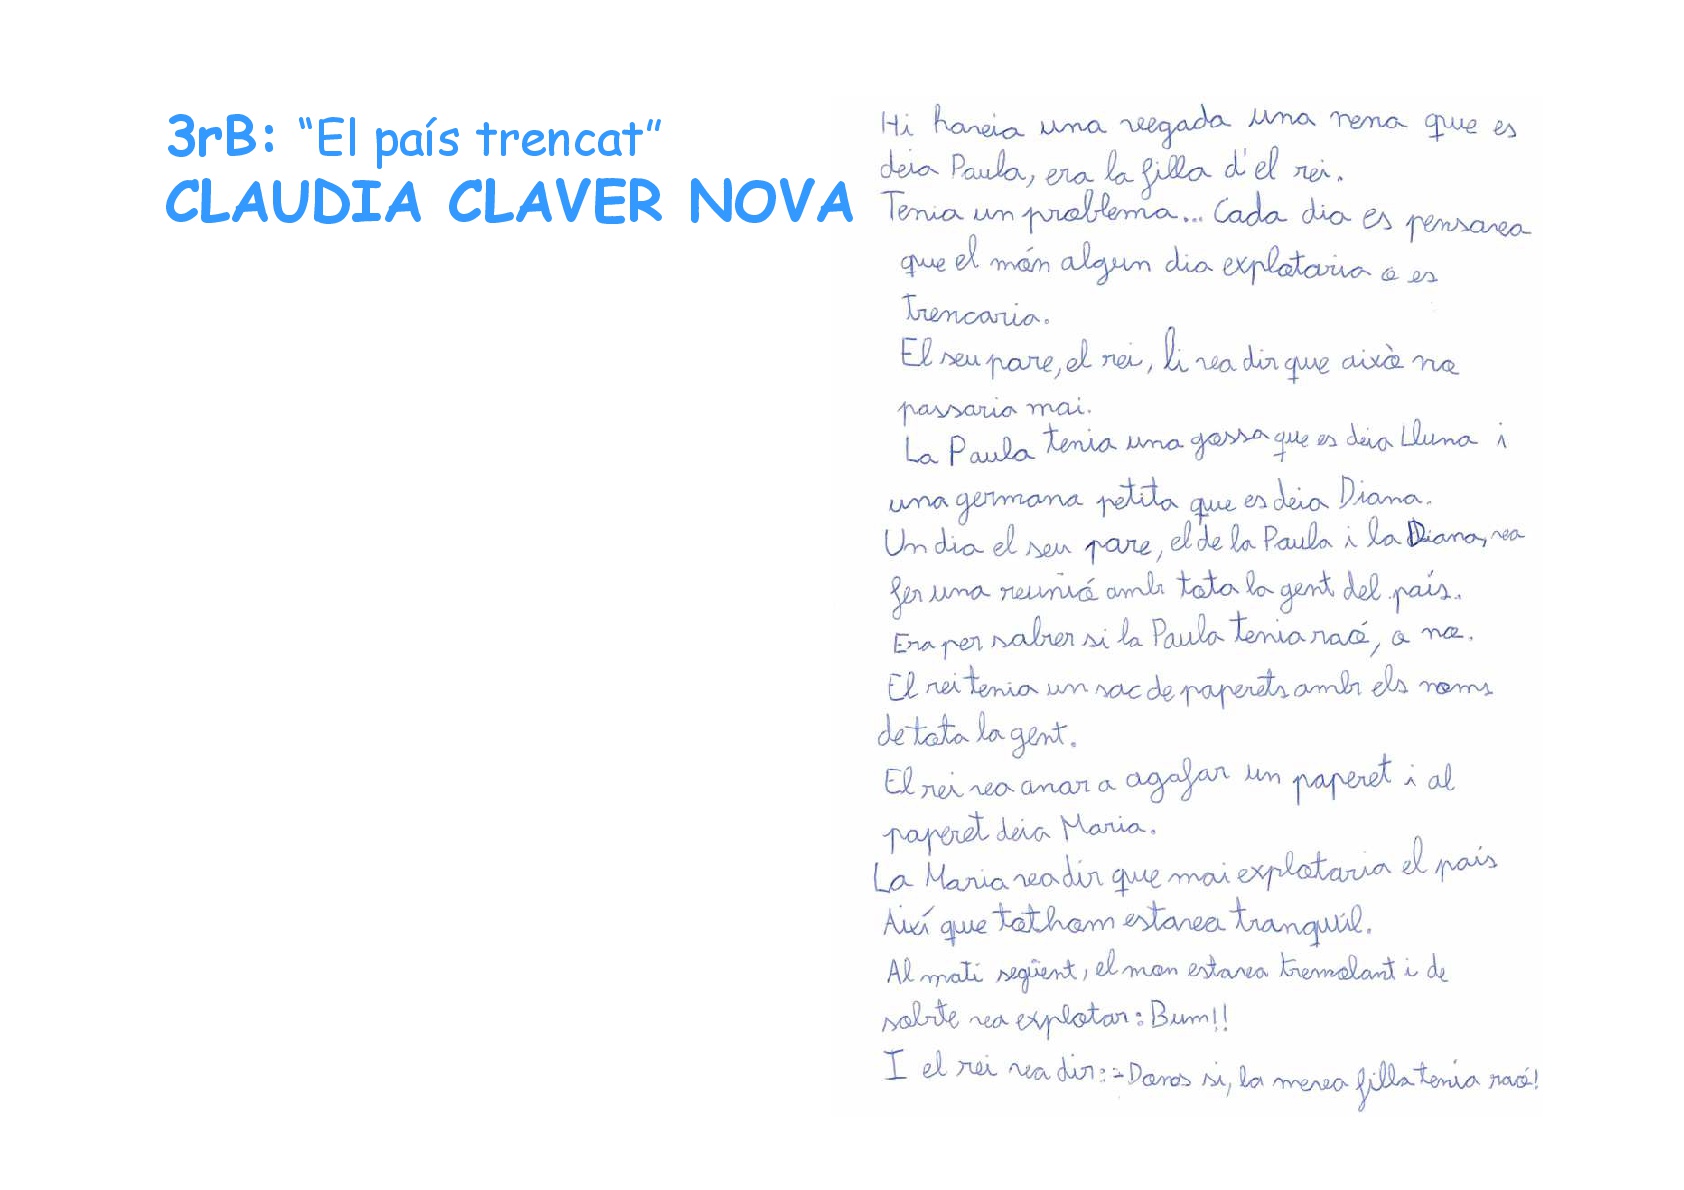 3rB: “El país trencat”
CLAUDIA CLAVER NOVA
Hi havia una vegada una nena que es
deia Paula, era la filla d'el rei.
Tenia un problema... Cada dia es pensava
que el món algun dia explotaria o es
trencaria.
El seu pare, el rei, li va dir que això no
passaria mai.
La Paula tenia una gossa que es deia Lluna i
una germana petita que es deia Diana.
Un dia el seu pare, el de la Paula i la Diana, va
fer una reunió amb tota la gent del país.
Era per sabrer si la Paula tenia raó, o no.
El rei tenia un sac de paperets amb els noms
de tota la gent.
El rei va anar a agafar un paperet i al
paperet deia Maria.
La Maria va dir que mai explotaria el país
Així que tothom estava tranquil.
Al matí següent, el mon estava tremolant i de
sobte va explotar: Bum!!
I el rei va dir: -Doncs si, la meva filla tenia raó!